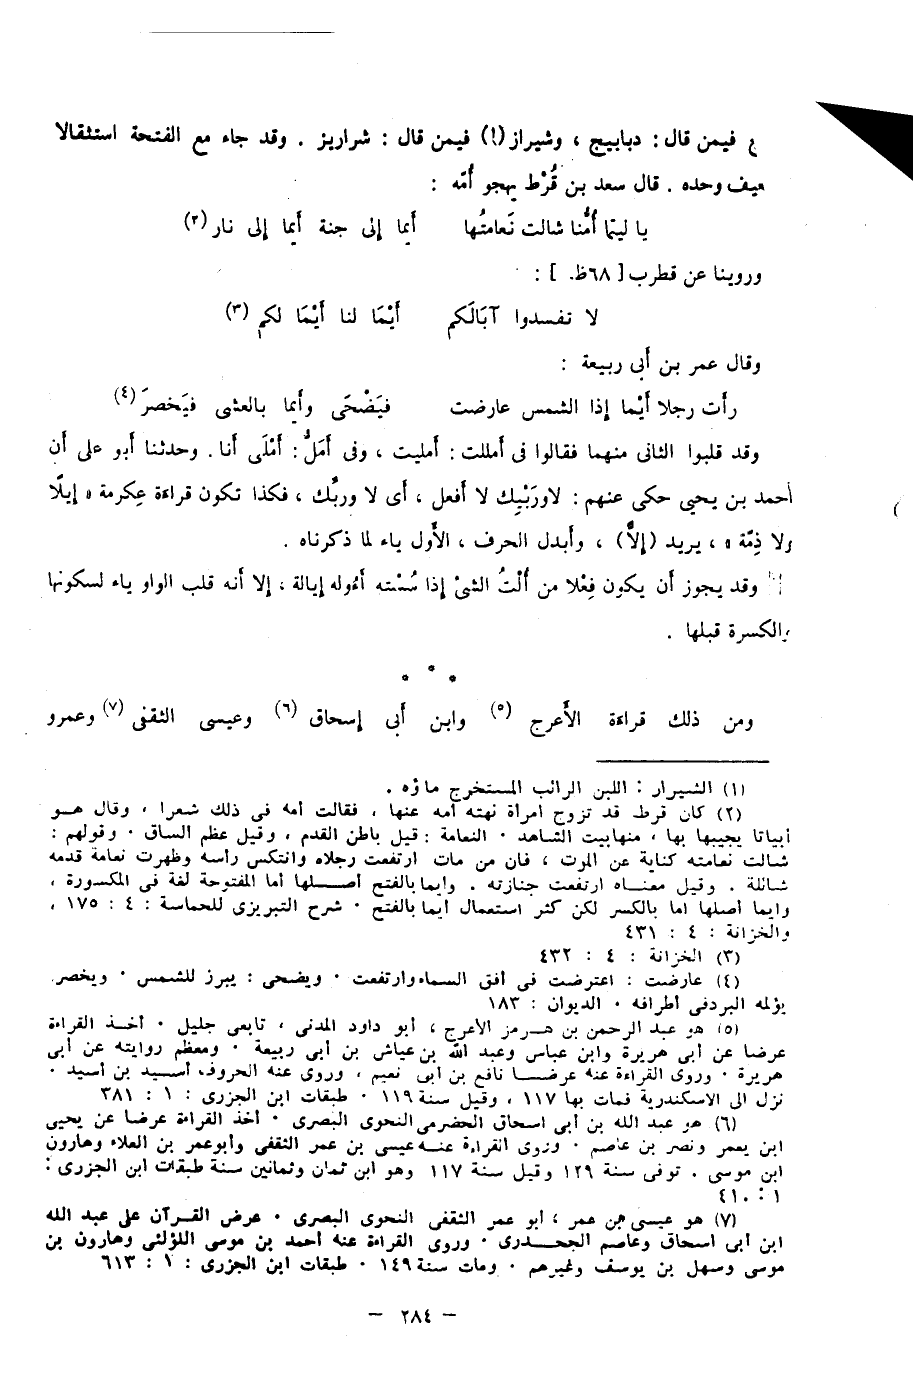 فيمن قال : دبابيج ، وشيراز (١) فيمن قال : شراريز . وقد جاء مع الفتحة استثقالا
وحده . قال سعد بن قُرْط يهجو أمّه :
يا ليتما أمُّنا شالت نَعامتُها أيما إلى جنة أيما إلى نار (٢)
وروينا عن قطرب [ ٦٨ظ. ] :
لا تفسدوا آبَالَكم أَيْمَا لنا أَيْمَا لكم (٣)
وقال عمر بن أبى ربيعة :
رأت رجلا أَيْما إذا الشمس عارضت فيَضْحَى وأيما بالعشى فيَخصرَ (٤)
وقد قلبوا الثانى منهما فقالوا فى أمللت : أمليت ، وفى أمَلُّ : أمْلَى أنا . وحدثنا أبو على أن
أحمد بن يحيى حكى عنهم : لاورَبْيِك لا أفعل ، أى لا وربِّك ، فكذا تكون قراءة عِكرمة « إيلًا
ولا ذِمّة » ، يريد (إِلّاً) ، وأبدل الحرف ، الأول ياء لما ذكرناه .
وقد يجوز أن يكون فِعْلا من أُلْتُ الشىْ إذا سُسْته أءُوله إيالة ، إلا أنه قلب الواو ياء لسكونها
والكسرة قبلها .
* * *
ومن ذلك قراءة الأَعرج (٥) وابن أبى إسحاق (٦) وعيسى الثقفى (٧) وعمرو
(١) الشيراز : اللبن الرائب المستخرج ماؤه .
(٢) كان قرط قد تزوج امرأة نهته أمه عنها ، فقالت أمه فى ذلك شعرا ، وقال هو
أبياتا يجيبها بها ، منها بيت الشاهد . النعامة : قيل باطن القدم ، وقيل عظم الساق . وقولهم :
شالت نعامته كناية عن الموت ، فان من مات ارتفعت رجلاه وانتكس رأسه وظهرت نعامة قدمه
شائلة . وقيل معناه ارتفعت جنازته . وايما بالفتح أصلها أما المفتوحة لغة فى المكسورة ،
وايما أصلها اما بالكسر لكن كثر استعمال أيما بالفتح . شرح التبريزى للحماسة : ٤ : ١٧٥ ،
والخزانة : ٤ : ٤٣١
(٣) الخزانة : ٤ : ٤٣٢
(٤) عارضت : اعترضت فى أفق السماء وارتفعت . ويضحى : يبرز للشمس . ويخصر
يؤلمه البرد فى أطرافه . الديوان : ١٨٣
(٥) هو عبد الرحمن بن هرمز الأعرج ، أبو داود المدنى ، تابعى جليل . أخذ القراءة
عرضا عن أبى هريرة وابن عباس وعبد الله بن عياش بن أبى ربيعة . ومعظم روايته عن أبى
هريرة . وروى القراءة عنه عرضا نافع بن أبى نعيم ، وروى عنه الحروف أسيد بن أسيد .
نزل الى الاسكندرية فمات بها ١١٧ ، وقيل سنة ١١٩ . طبقات ابن الجزرى : ١ : ٣٨١
(٦) هو عبد الله بن أبى اسحاق الحضرمى النحوى البصرى . أخذ القراءة عرضا عن يحيى
ابن يعمر ونصر بن عاصم . وروى القراءة عنه عيسى بن عمر الثقفى وأبو عمر بن العلاء وهارون
ابن موسى . توفى سنة ١٢٩ وقيل سنة ١١٧ وهو ابن ثمان وثمانين سنة طبقات ابن الجزرى :
١ : ٤١٠
(٧) هو عيسى بن عمر ، أبو عمر الثقفى النحوى البصرى . عرض القرآن على عبد الله
ابن أبى اسحاق وعاصم الجحدرى . وروى القراءة عنه أحمد بن موسى اللؤلئى وهارون بن
موسى وسهل بن يوسف وغيرهم . ومات سنة ١٤٩ . طبقات ابن الجزرى : ١ : ٦١٣
— ٢٨٤ —